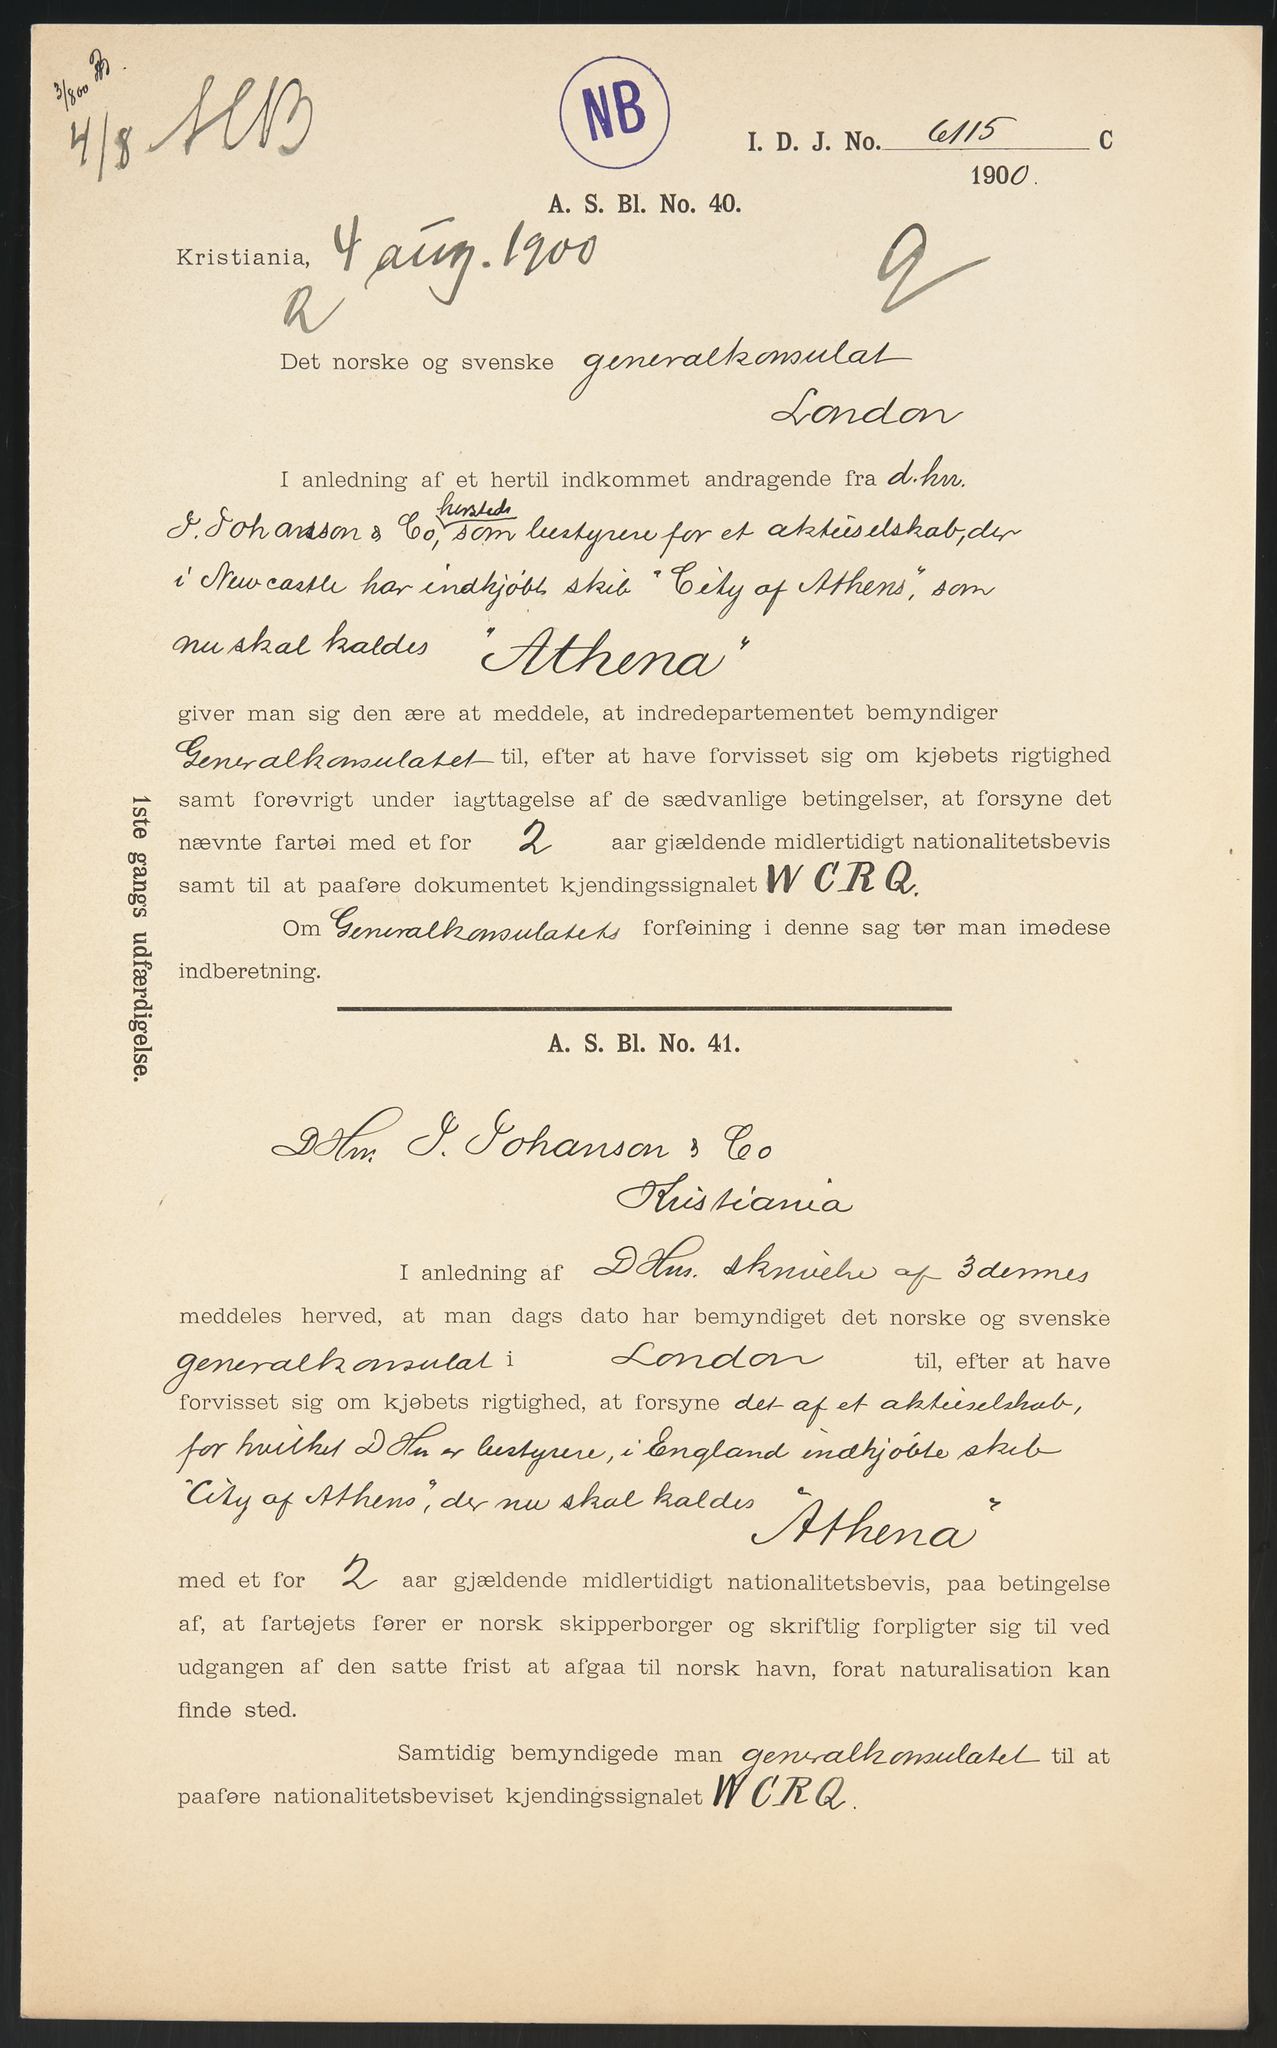 3/8 00
4/8
NB
I. D. J. No. 6115 C
1900.
A. S. Bl. No. 40.
Kristiania, 4 aug. 1900
Det norske og svenske generalkonsulat
London
I anledning af et hertil indkommet andragende fra d.hrr.
hersteds
J. Johansson & Co, som bestyrere for et aktieselskab, der
i Newcastle har indkjøbt skib "City of Athens", som
nu skal kaldes "Athena"
giver man sig den ære at meddele, at indredepartementet bemyndiger
Generalkonsulatet til, efter at have forvisset sig om kjøbets rigtighed
samt forøvrigt under iagttagelse af de sædvanlige betingelser, at forsyne det
nævnte fartøi med et for 2 aar gjældende midlertidigt nationalitetsbevis
samt til at paaføre dokumentet kjendingssignalet W C R Q.
Om Generalkonsulatets forføining i denne sag tør man imødese
indberetning.
1ste gangs udfærdigelse.
A. S. Bl. No. 41.
D Hrr. J. Johanson & Co
Kristiania
I anledning af D Hrs. skrivelse af 3 dennes
meddeles herved, at man dags dato har bemyndiget det norske og svenske
generalkonsulat i London til, efter at have
forvisset sig om kjøbets rigtighed, at forsyne det af et aktieselskab,
for hvilket D Hrr er bestyrere, i England indkjøbte skib
"City of Athens", der nu skal kaldes "Athena"
med et for 2 aar gjældende midlertidigt nationalitetsbevis, paa betingelse
af, at fartøjets fører er norsk skipperborger og skriftlig forpligter sig til ved
udgangen af den satte frist at afgaa til norsk havn, forat naturalisation kan
finde sted.
Samtidig bemyndigede man generalkonsulatet til at
paaføre nationalitetsbeviset kjendingssignalet W C R Q.